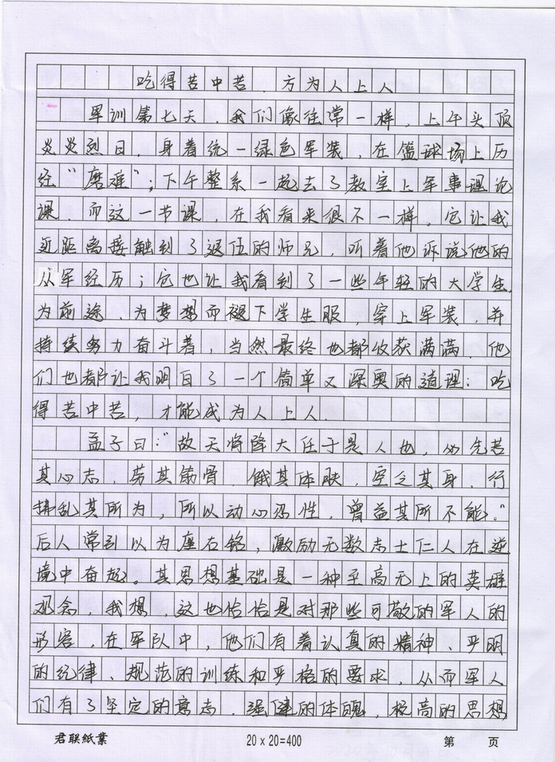 吃得苦中苦，方为人上人
军训第七天，我们像往常一样，上午头顶
炎炎烈日，身着统一绿色军装，在篮球场上历
经“磨难”；下午整系一起去了教室上军事理论
课，而这一节课，在我看来很不一样，它让我
近距离接触到了退伍的师兄，听着他诉说他的
从军经历；它也让我看到了一些年轻的大学生
为前途，为梦想而褪下学生服，穿上军装，并
持续努力奋斗着，当然最终也都收获满满，他
们也都让我明白了一个简单又深奥的道理：吃
得苦中苦，才能成为人上人。
孟子曰：“故天将降大任于是人也，必先苦
其心志，劳其筋骨，饿其体肤，空乏其身，行
拂乱其所为，所以动心忍性，曾益其所不能。”
后人常引以为座右铭，激励无数志士仁人在逆
境中奋起。其思想基础是一种至高无上的英雄
观念，我想，这也恰恰是对那些可敬的军人的
形容，在军队中，他们有着认真的精神、严明
的纪律、规范的训练和严格的要求，从而军人
们有了坚定的意志，强健的体魄，极高的思想
君联纸业
20×20=400
第 页